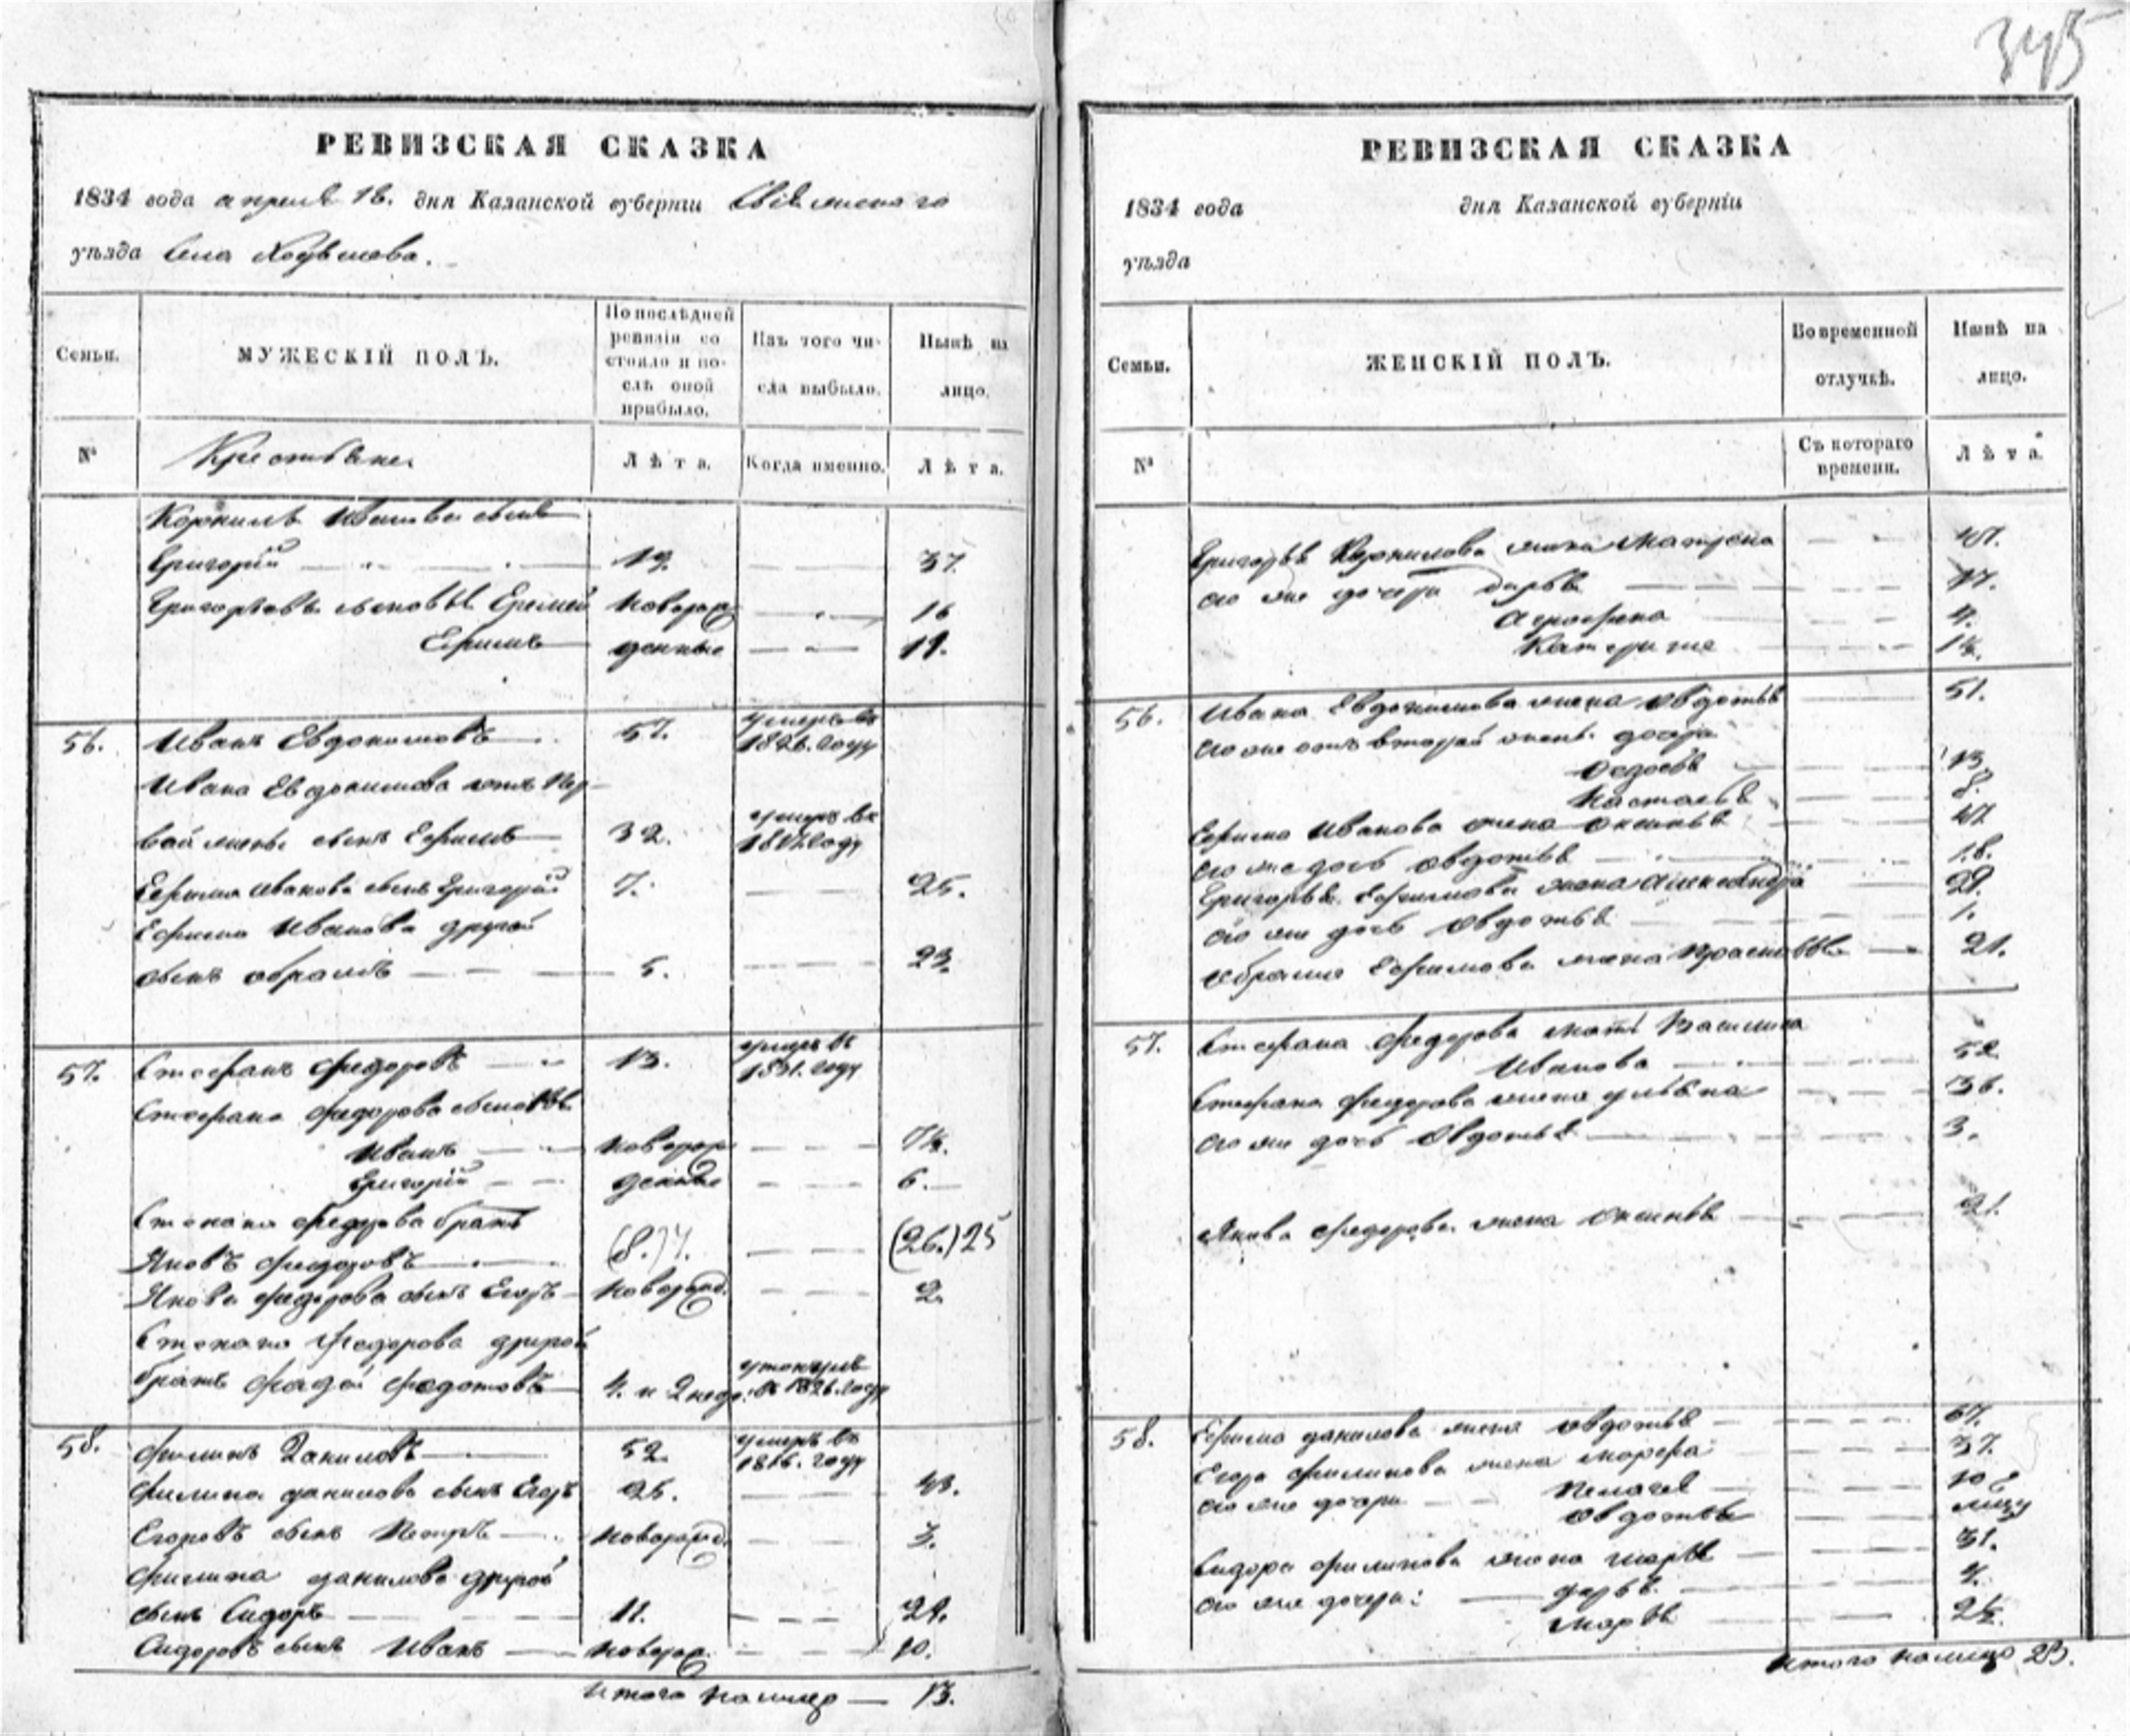 345
РЕВИЗСКАЯ СКАЗКА
1834 года апреля 16. дня Казанской губернiи
уѣзда Села
Семьи.
МУЖЕСКІЙ ПОЛЪ.
По послѣдней ревизіи состояло и послѣ оной прибыло.
Изъ того числа выбыло.
Нынѣ на лицо.
№
Крестьяне
Лѣта.
Когда именно.
Лѣта.
Корнилъ Иванова сынъ
Григорій 19. 37.
Григорьевъ сыновья Еремей новорож 16
Ефимъ денные 11.
56. Иванъ Евдокимовъ 57. умеръ въ 1826. году
Ивана Евдокимова отъ пер-
вой жены сынъ Ефимъ 32. умеръ въ году
Ефима Иванова сынъ Григорій 7. 25.
Ефима Иванова другой
сынъ Абрамъ 5. 23.
57. Стефанъ Федоровъ 13. умеръ въ 1831. году
Стефана Федорова сыновья
Иванъ новорож 7½.
Григорій денные 6.
Степана Федорова братъ
Яковъ Федоровъ (8.)7. (26.)25
Якова Федорова сынъ Егоръ новорожд. 2.
Степана Федорова другой
братъ Фадей Федотовъ 4. и 2 недо. утонулъ въ 1826. году
58. Филипъ Даниловъ 52. умеръ въ 1816. году
Филипа Данилова сынъ Егоръ 25. 43.
Егоровъ сынъ Петръ новорожд. 3.
Филипа Данилова другой
сынъ Сидоръ 11. 29.
Сидоровъ сынъ Иванъ новорож. 10.
Итого налицо — 13.
РЕВИЗСКАЯ СКАЗКА
1834 года дня Казанской губернiи
уѣзда
Семьи.
ЖЕНСКІЙ ПОЛЪ.
Во временной отлучкѣ.
Нынѣ на лицо.
№
Съ котораго времени.
Лѣта.
Григорья Корнилова жена Матрена
его же дочери Дарья 17.
4.
Катерина 1½.
56. Ивана Евдокимова жена Овдотья 51.
его же отъ второй жены дочери
Федосья 13.
Настасья 8.
Ефима Иванова жена Оксинья 47.
его же дочь Овдотья 18.
Григорья Ефимова жена Александра 29.
его же дочь Овдотья 1.
Абрама Ефимова жена Прасковья 21.
57. Стефана Федорова мать Василиса
Иванова 52.
Стефана Федорова жена Ульяна 36.
его же дочь Овдотья 3.
Якова Федорова жена Оксинья 21.
58. Ефима Данилова жена Овдотья 67.
Егора Филипова жена Марфа 37.
его же дочери Пелагея 10
Овдотья
Сидора Филипова жена Марья 31.
его же дочери: Дарья
Марья 2½.
Итого налицо 23.